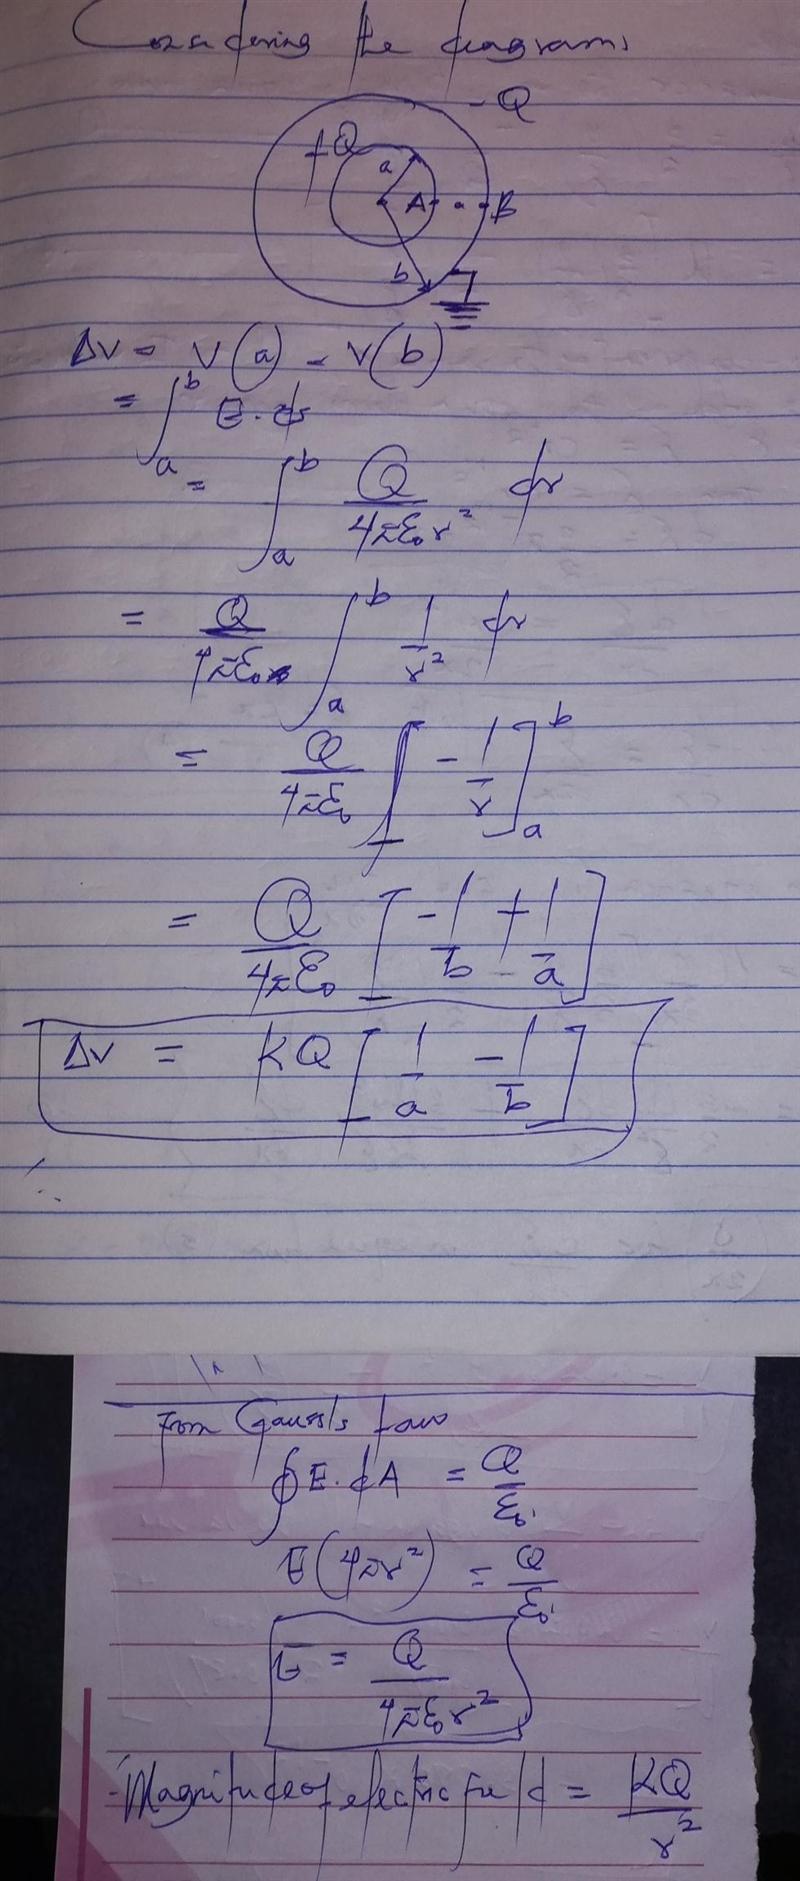 Considering the diagram,
- Q
+Q
a
A
B
b
ΔV = V(a) - V(b)
= ∫_a^b E. ds
= ∫_a^b Q/4πε₀r² dr
= Q/4πε₀ ∫_a^b 1/r² dr
= Q/4πε₀ [-1/r]_a^b
= Q/4πε₀ [-1/b + 1/a]
ΔV = KQ [1/a - 1/b]
∴
From Gauss's law
∮E. dA = Q/ε₀
E(4πr²) = Q/ε₀
E = Q/4πε₀r²
Magnitude of electric field = KQ/r²